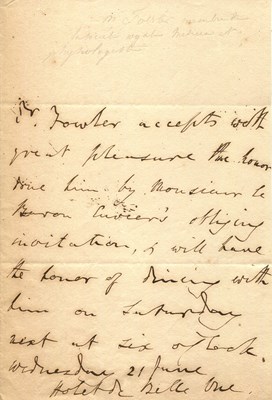 Mr Fowler
Mr. Fowler accepts with
great pleasure the honor
done him by Monsieur le
Baron Cuvier's obliging
invitation, & will have
the honor of dining with
him on Saturday
next at six o'clock.
Wednesday 21 June
Hotel de Belle Vue.